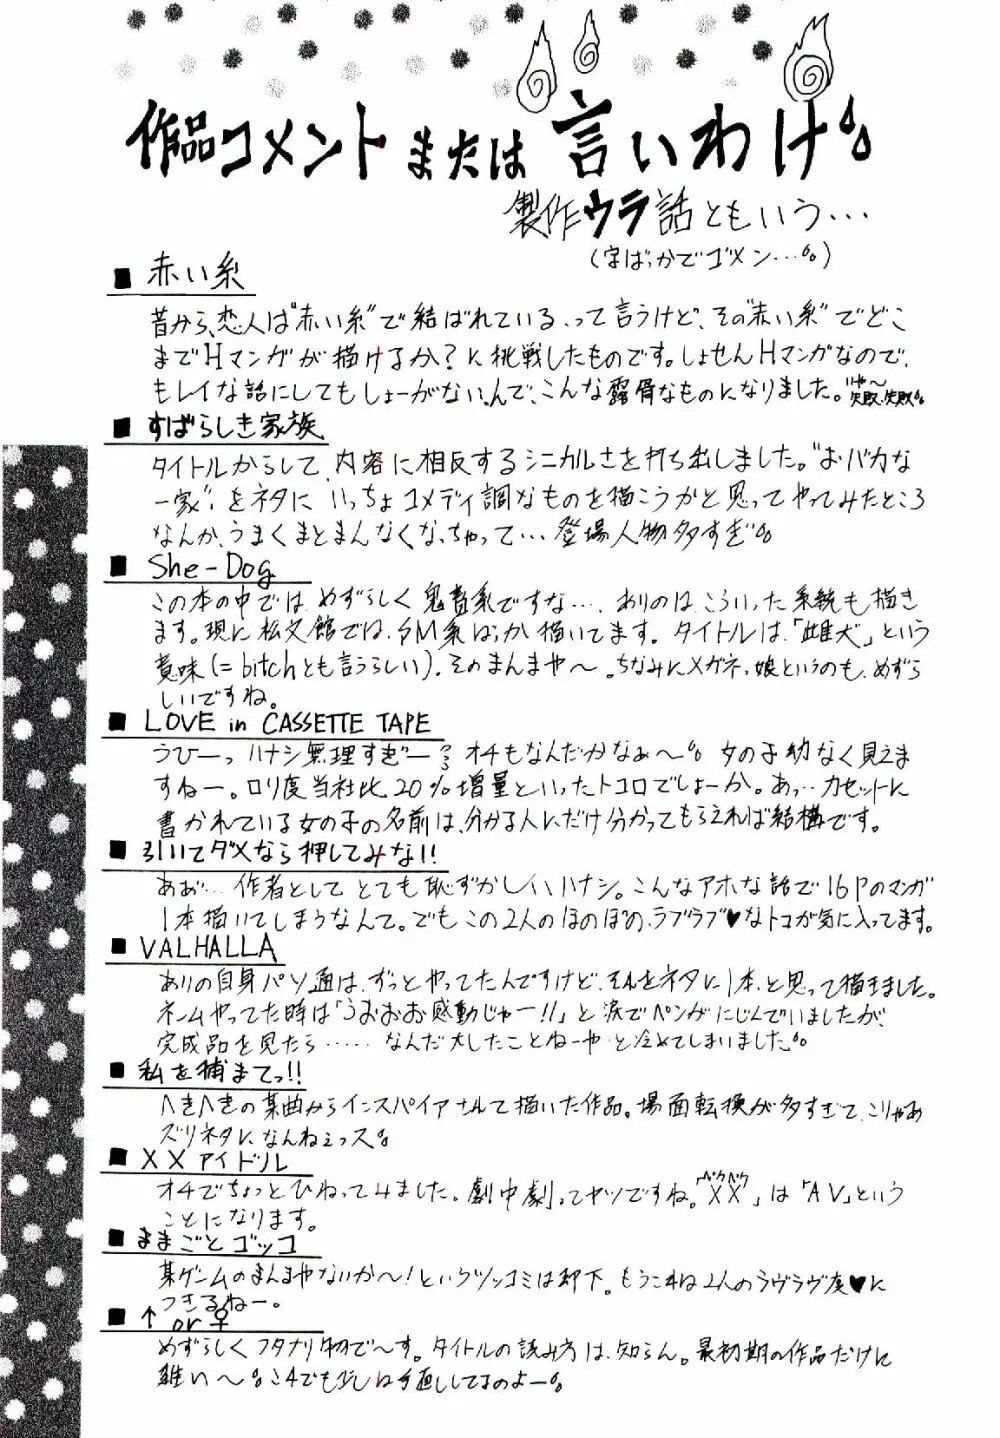 作品コメント または 言いわけ
製作ウラ話ともいう…
(字ばっかでゴメン…)
■ 赤い糸
昔から、恋人は"赤い糸"で結ばれている、って言うけど、その"赤い糸"でどこ
までHマンガが描けるか?に挑戦したものです。しょせんHマンガなので、
キレイな話にしてもしょーがないんで、こんな露骨なものになりました。いや〜失敗、失敗
■ すばらしき家族
タイトルからして、内容に相反するシニカルさを打ち出しました。"おバカな
一家"をネタに いっちょコメディ調なものを描こうかと思ってやってみたところ
なんか、うまくまとまんなくなっちゃって…登場人物多すぎ
■ She-Dog
この本の中では、めずらしく鬼畜系ですな…。ありのは、こういった系統も描き
ます。現に松文館では、SM系ばっか描いてます。タイトルは、「雌犬」という
意味(=bitchとも言うらしい)。そのまんまや〜。ちなみにメガネっ娘というのも、めずら
しいですね。
■ LOVE in CASSETTE TAPE
うひーっ ハナシ無理すぎー? オチもなんだかなぁ〜 女の子幼なく見えま
すねー。ロリ度当社比20%増量といったトコロでしょーか。あっ…カセットに
書かれている女の子の名前は、分かる人にだけ分かってもらえれば結構です。
■ 引いてダメなら押してみな!!
あぉ… 作者として とても恥ずかしいハナシ。こんなアホな話で16Pのマンガ
1本描いてしまうなんて。でもこの2人のほのぼの、ラブラブ♥なトコが気に入ってます。
■ VALHALLA
ありの自身パソ通は、ずっとやってたんですけど、それをネタに1本、と思って描きました。
ネームやってた時は「うおおお感動じゃー!!」と涙でペンがにじんでいましたが、
完成品を見たら…… なんだ大したことねーや と冷めてしまいました
■ 私を捕まてっ!!
へきへきの某曲からインスパイアされて描いた作品。場面転換が多すぎて、こりゃあ
ズリネタになんねぇっス
■ XXアイドル
オチでちょっとひねってみました。劇中劇ってヤツですね。「XX(ペケペケ)」は「AV」という
ことになります。
■ ままごとゴッコ
某ゲームのまんまやないか〜!というツッコミは却下。もうこれは2人のラヴラヴ度♥に
つきるねー。
■ ↑or♀
めずらしくフタナリ物で〜す。タイトルの読み方は、知らん。最初期の作品だけに
雑い〜 これでも少しは手直ししてるのよー